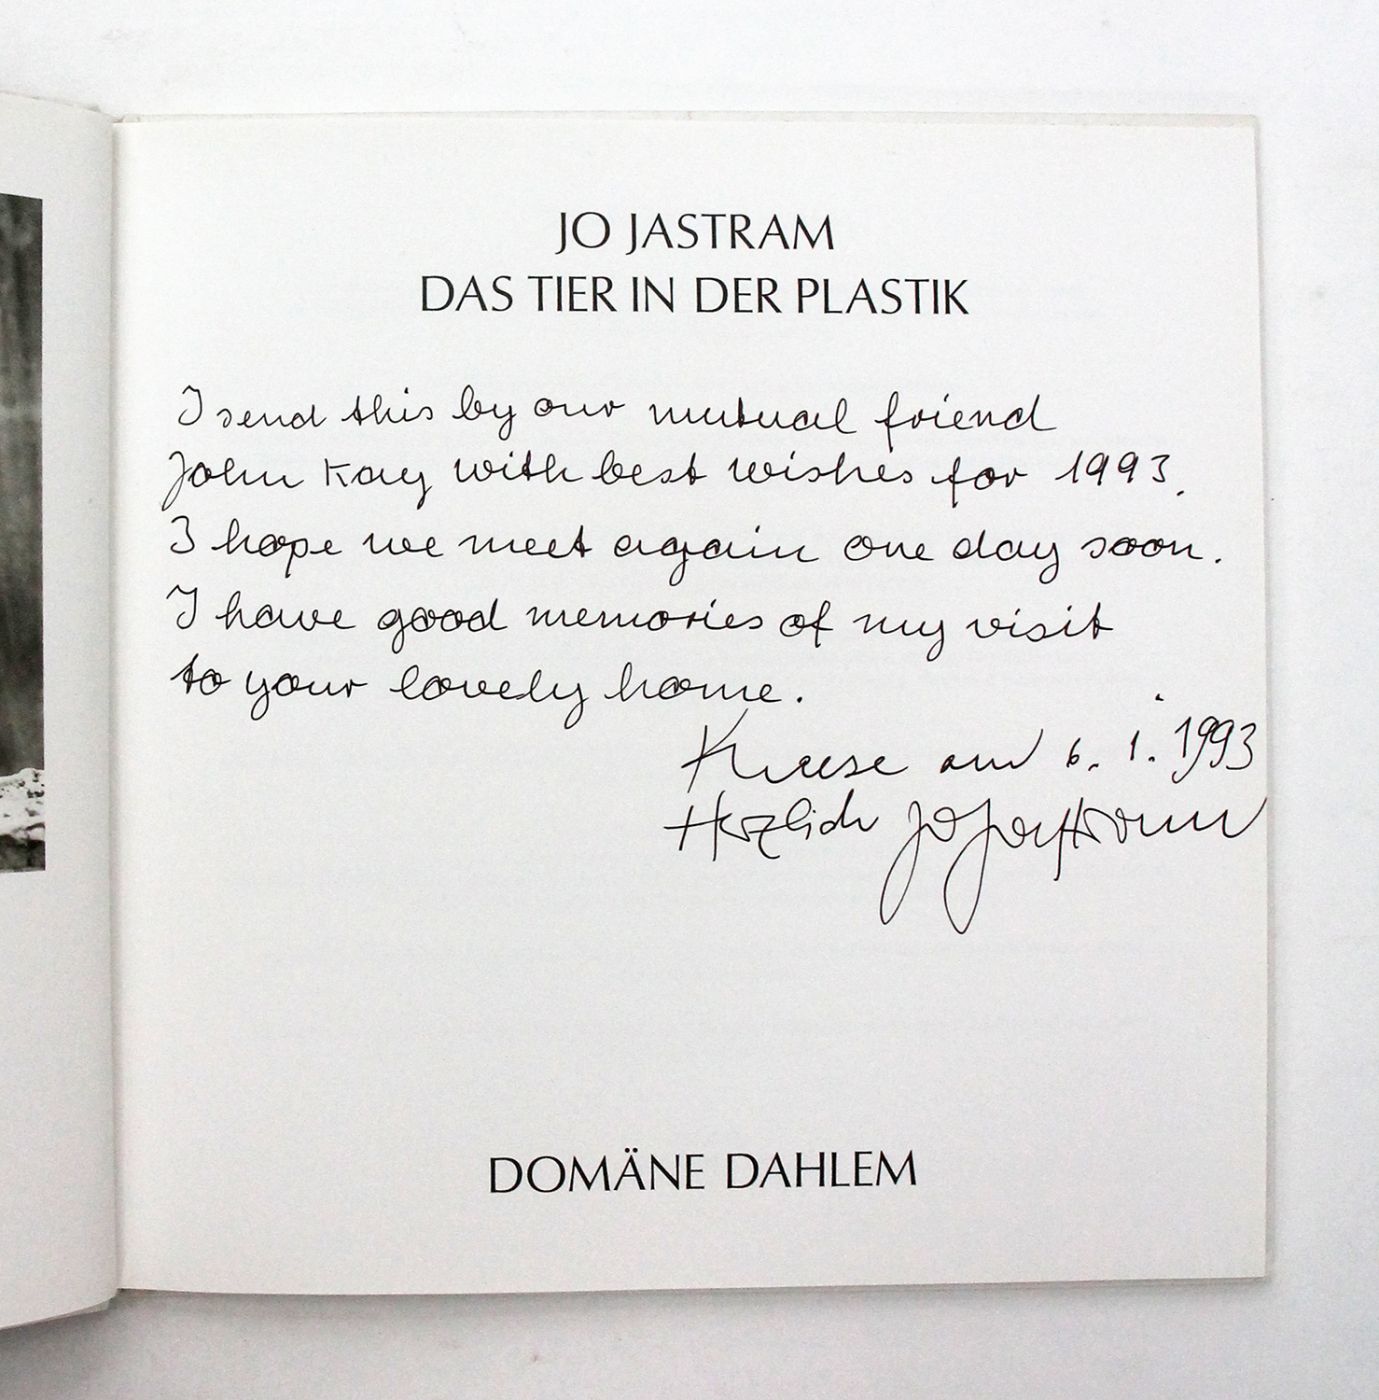 JO JASTRAM
DAS TIER IN DER PLASTIK
I send this by our mutual friend
John Kay with best wishes for 1993.
I hope we meet again one day soon.
I have good memories of my visit
to your lovely home.
am 6. 1. 1993
Herzlich Jo Jastram
DOMÄNE DAHLEM